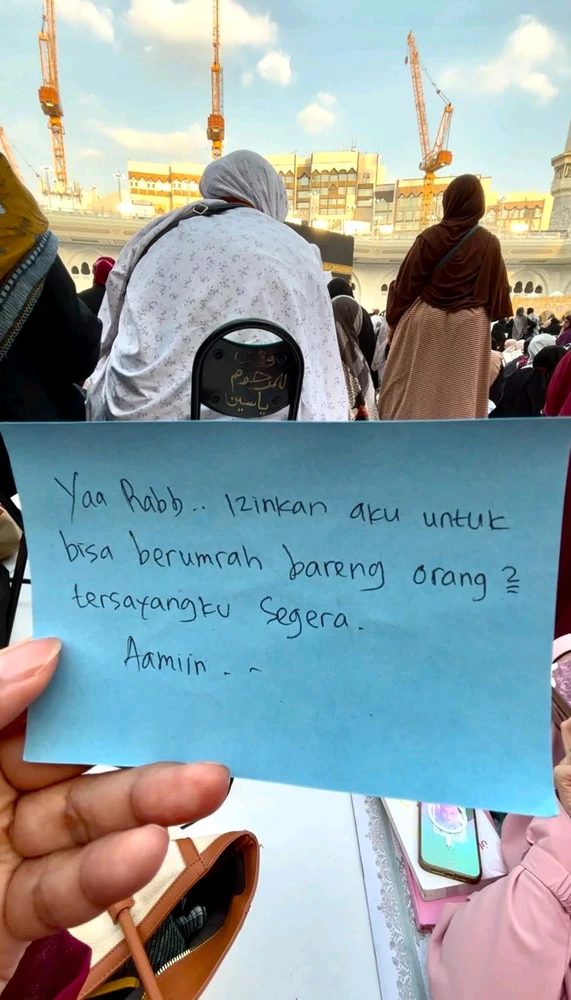 وقف
للمرحوم
ياسين
Yaa Rabb.. Izinkan aku untuk
bisa berumrah bareng orang 2
tersayangku segera.
Aamiin..